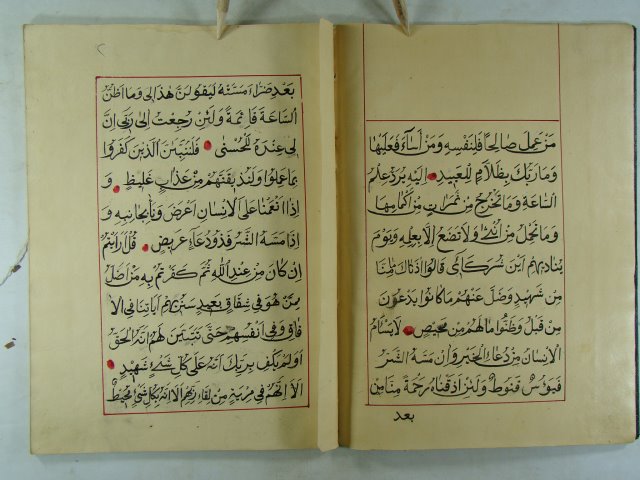 من عمل صالحا فلنفسه ومن أساء فعليها
وما ربك بظلام للعبيد اليه يرد علم
الساعة وما تخرج من ثمرات من اكمامها
وما تحمل من انثى ولا تضع الا بعلمه ويوم
يناديهم اين شركائى قالوا اذناك ما منا
من شهيد وضل عنهم ما كانوا يدعون
من قبل وظنوا ما لهم من محيص لا يسأم
الانسان من دعاء الخير وان مسه الشر
فيؤس قنوط ولئن اذقناه رحمة منا من
بعد
بعد ضراء مسته ليقولن هذا لى وما اظن
الساعة قائمة ولئن رجعت الى ربى ان
لى عنده للحسنى فلننبئن الذين كفروا
بما عملوا ولنذيقنهم من عذاب غليظ و
اذا انعمنا على الانسان اعرض ونأ بجانبه و
اذا مسه الشر فذو دعاء عريض قل ارايتم
ان كان من عند الله ثم كفرتم به من اضل
ممن هو فى شقاق بعيد سنريهم اياتنا فى الا
فاق وفى انفسهم حتى يتبين لهم انه الحق
اولم يكف بربك انه على كل شئ شهيد
الا انهم فى مرية من لقاء ربهم الا انه بكل شئ محيط